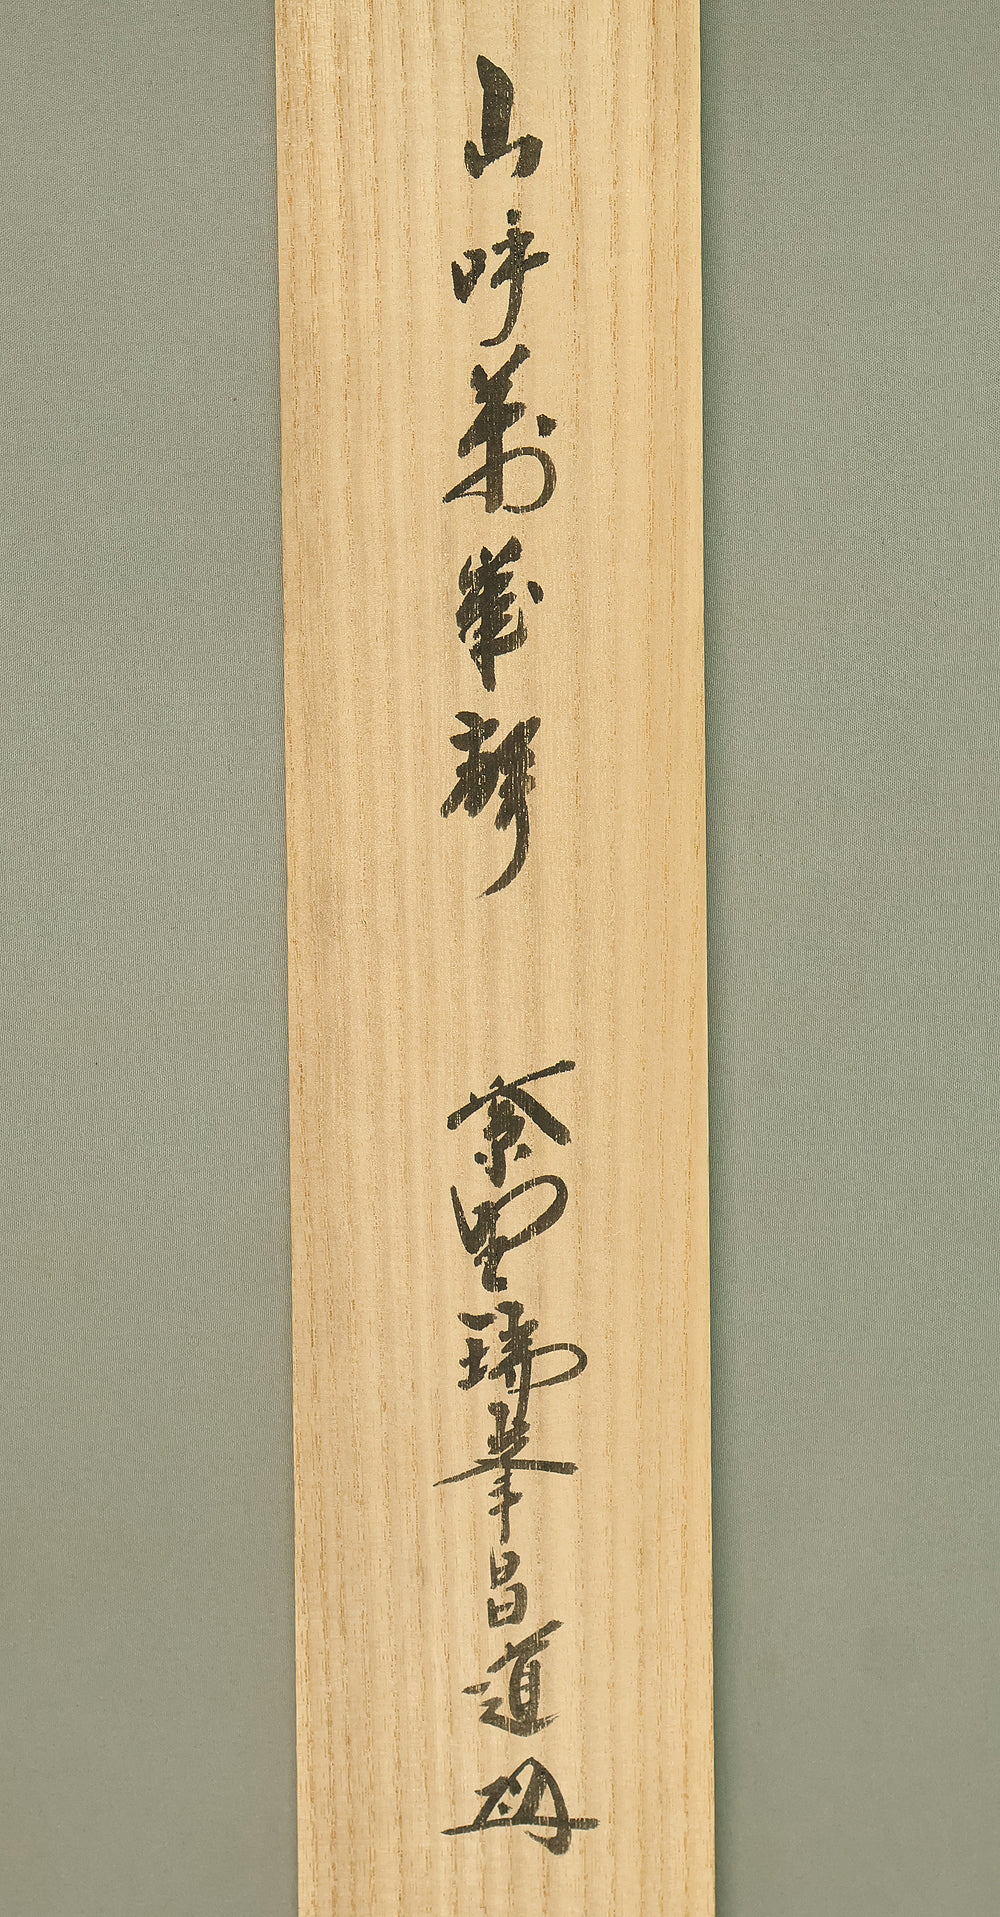 山呼萬歳聲 紫野瑞峯昌道